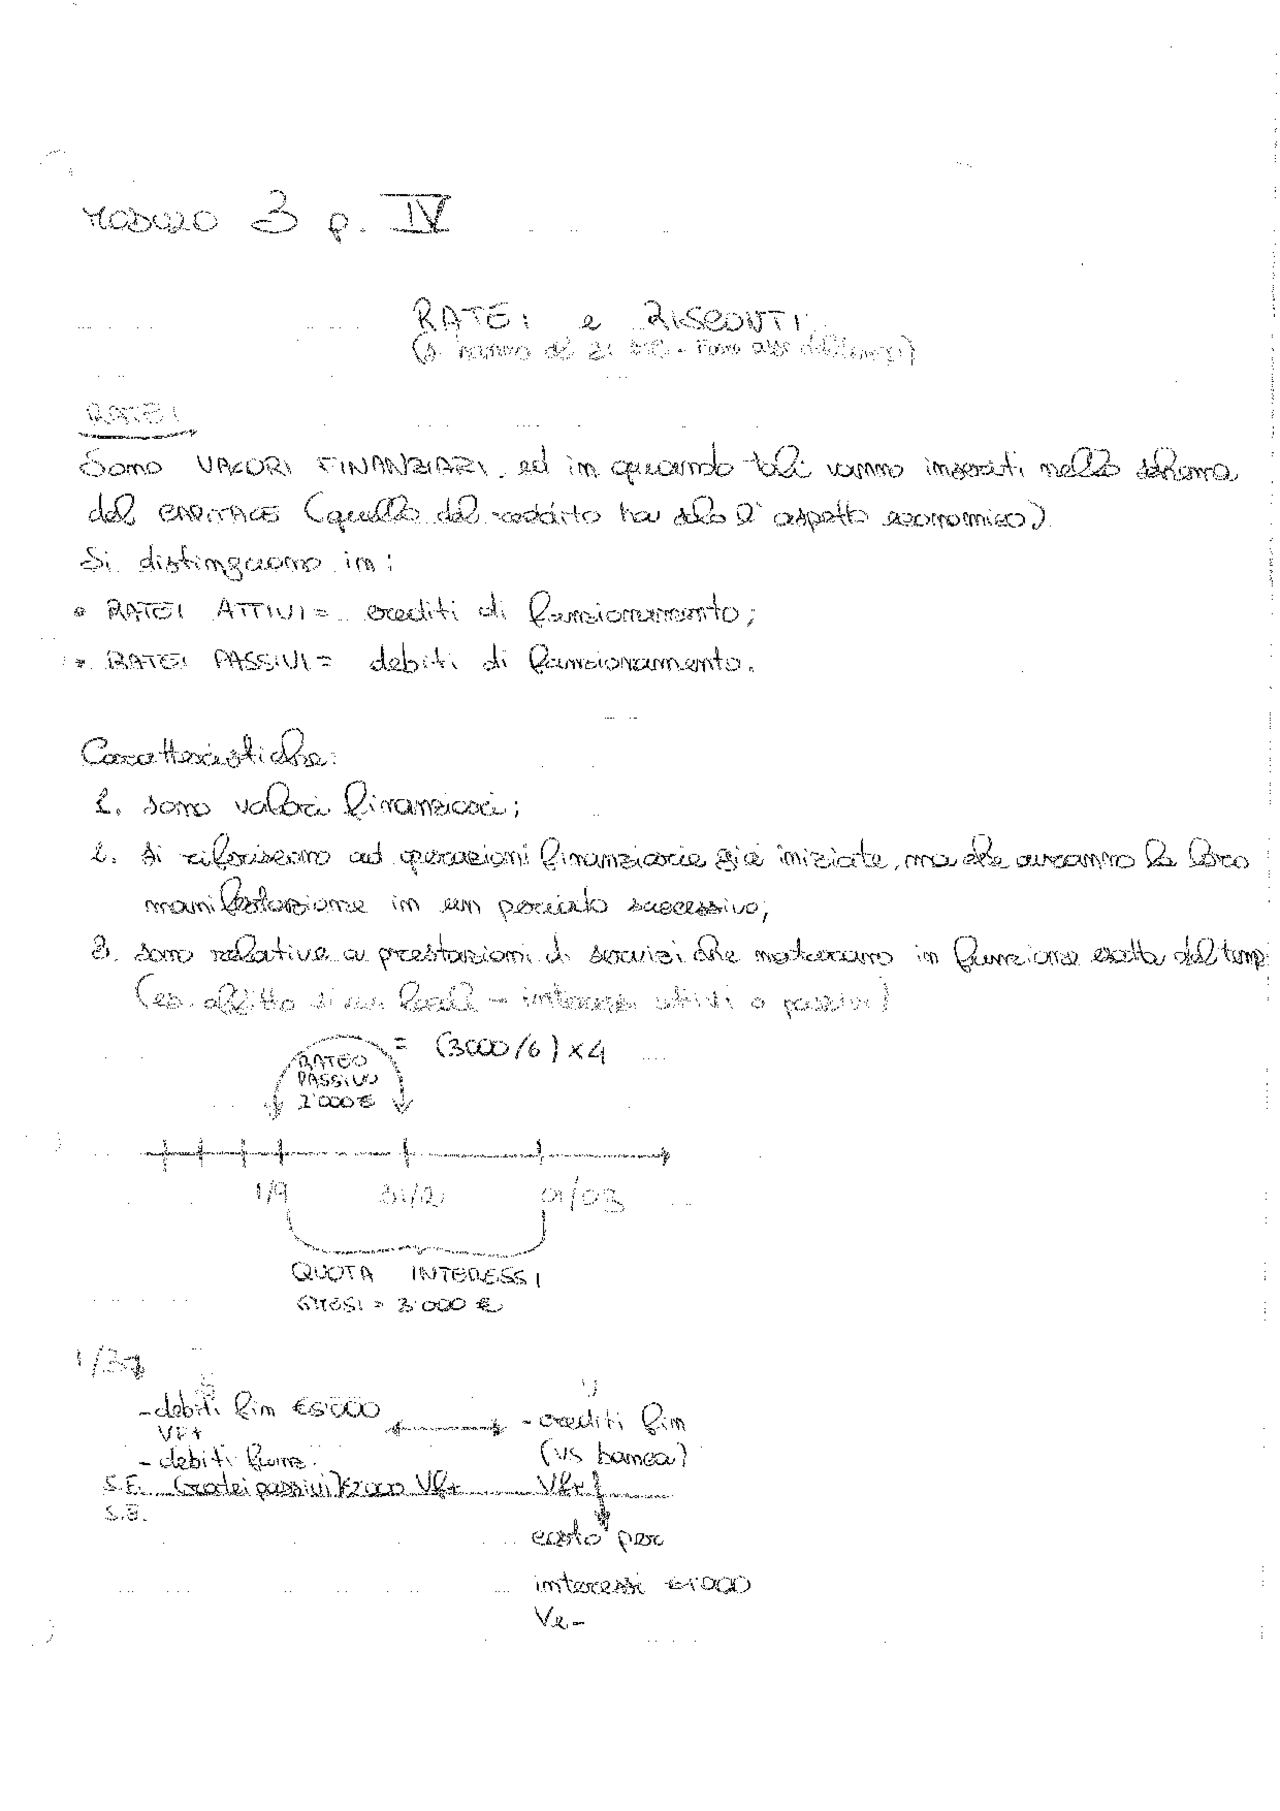 MODULO 3 p. IV
RATEI e RISCONTI
(si hanno al 31 DIC -
RATEI
Sono VALORI FINANZIARI ed in quando tali vanno inseriti nello schema
del CAPITALE (quello del reddito ha solo l'aspetto economico).
Si distinguono in:
• RATEI ATTIVI = crediti di funzionamento;
• RATEI PASSIVI = debiti di funzionamento.
Caratteristiche:
1. sono valori finanziari;
2. si riferiscono ad operazioni finanziarie già iniziate, ma che avranno la loro
manifestazione in un periodo successivo;
3. sono relative a prestazioni di servizi che maturano in funzione esatta del temp
(es. affitto di un locale - interessi attivi o passivi)
= (3000/6) x 4
RATEO
PASSIVO
2'000 €
1/9 31/12 01/03
QUOTA INTERESSI
6 MESI = 3'000 €
- debiti fin - crediti fin
VF+ (vs banca)
- debiti funz.
S.E. (ratei passivi) €2000 Vf+ Vf+
S.E.
costo per
interessi
Ve-